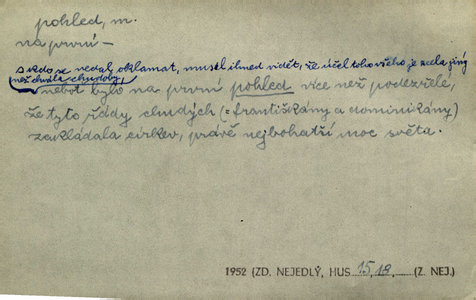 pohled, m.
na první –
a kdo se nedal oklamat, musel ihned vidět, že účel toho všeho je zcela jiný
než chvála chudoby,
neboť bylo na první pohled více než podezřelé,
že tyto řády chudých (= františkány a dominikány)
zakládala církev, právě nejbohatší moc světa.
1952 (ZD. NEJEDLÝ, HUS 15, 18, (Z. NEJ.)